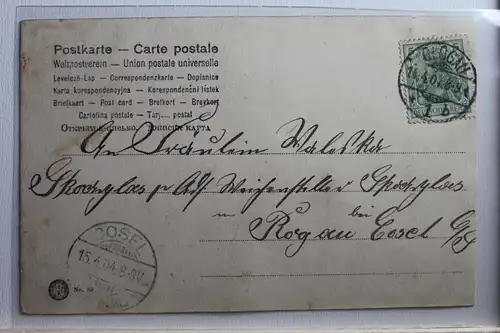 Postkarte — Carte postale
Weltpostverein — Union postale universelle
Levelező-Lap — Correspondenzkarte — Dopisnice
Karta korespondencyjna — Korespondenční lístek
Briefkaart — Post card — Brefkort — Brevkort
Cartolina postale — Tarj.... postal
GLOGAU
14.4.04
b
An Fräulein Waleska
Skorzylas p. Ad. Weichensteller Skorzylas
in
bei
Rogau Cosel O/S
COSEL
15.4.04.8-9V
Nr.